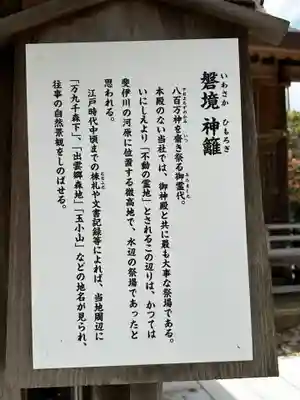 いわさか ひもろぎ
磐境 神籬
やおよろずのかみ いつ みたましろ
八百万神を斎き祭る御霊代。
本殿のない当社では、御神殿と共に最も大事な祭場である。
いにしえより「不動の霊地」とされるこの辺りは、かつては
斐伊川の河原に位置する微高地で、水辺の祭場であったと
思われる。
江戸時代中頃までの棟札や文書記録等によれば、当地周辺に
「万九千森下」、「出雲郷森地」、「玉小山」などの地名が見られ、
往事の自然景観をしのばせる。